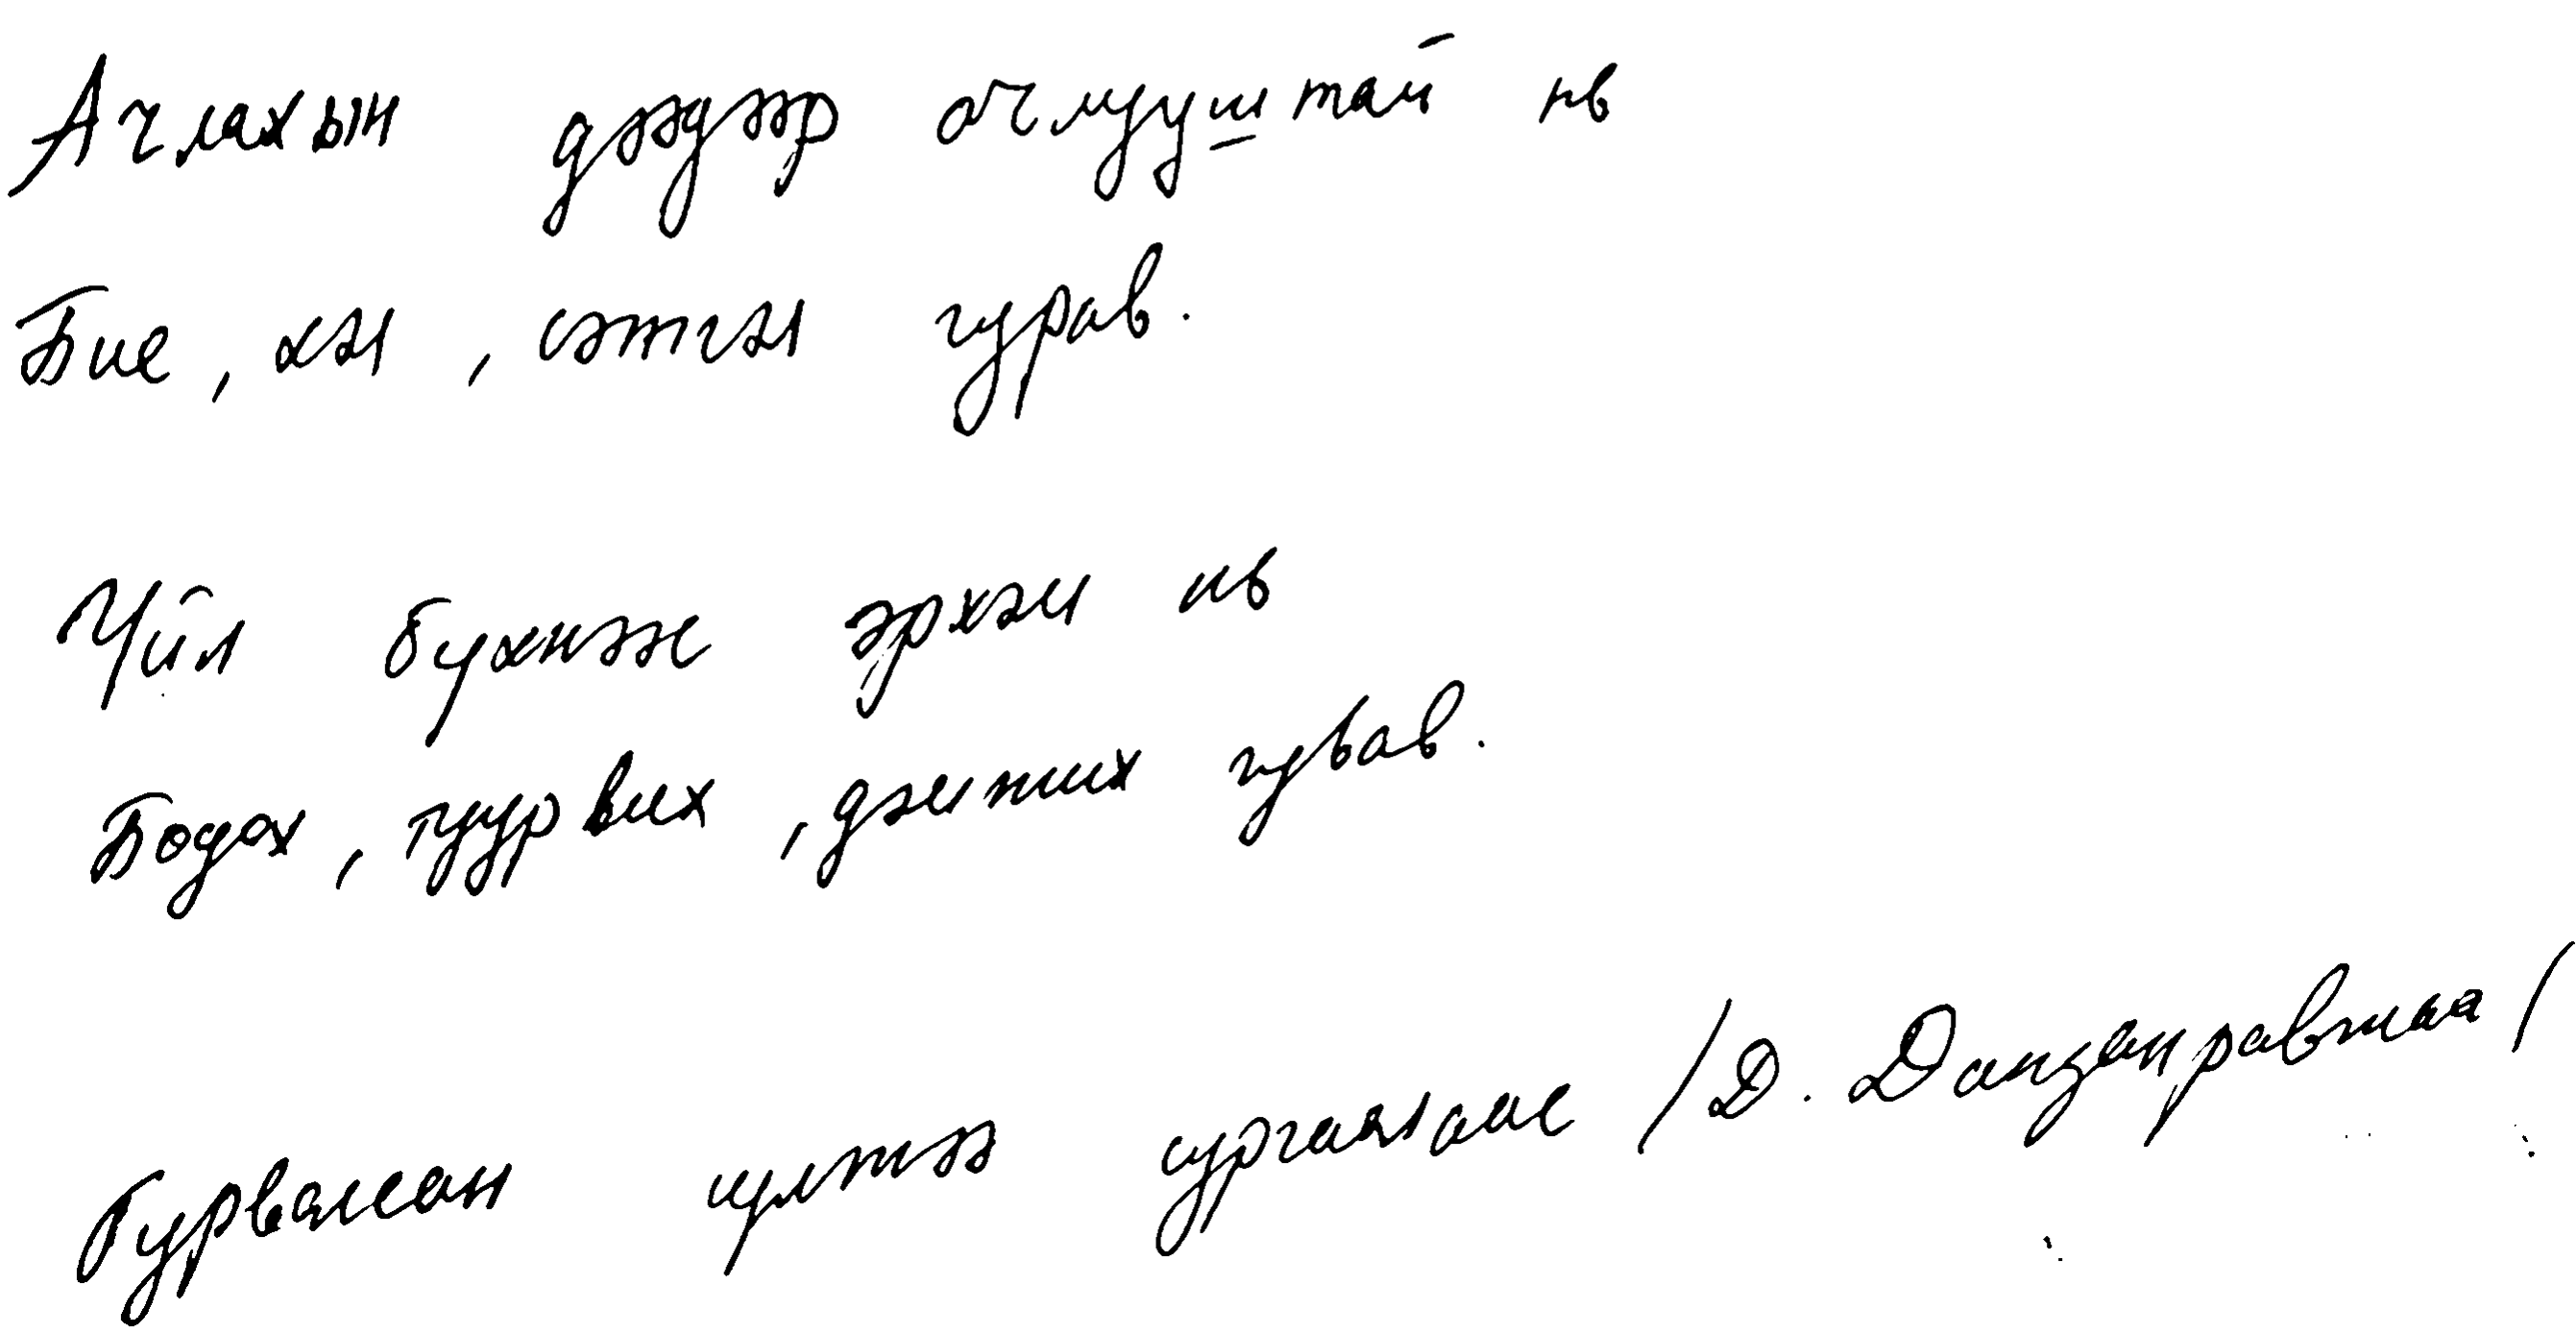 Ачлахын дээдээр ачлууштай нь
Бие, хэл, сэтгэл гурав.
Үйл бүхнээс эрхэм нь
Бодох, туурвих, дэмжих гурав.
Гурвалсан үлгэр сургаалаас /Д. Данзанравжаа/